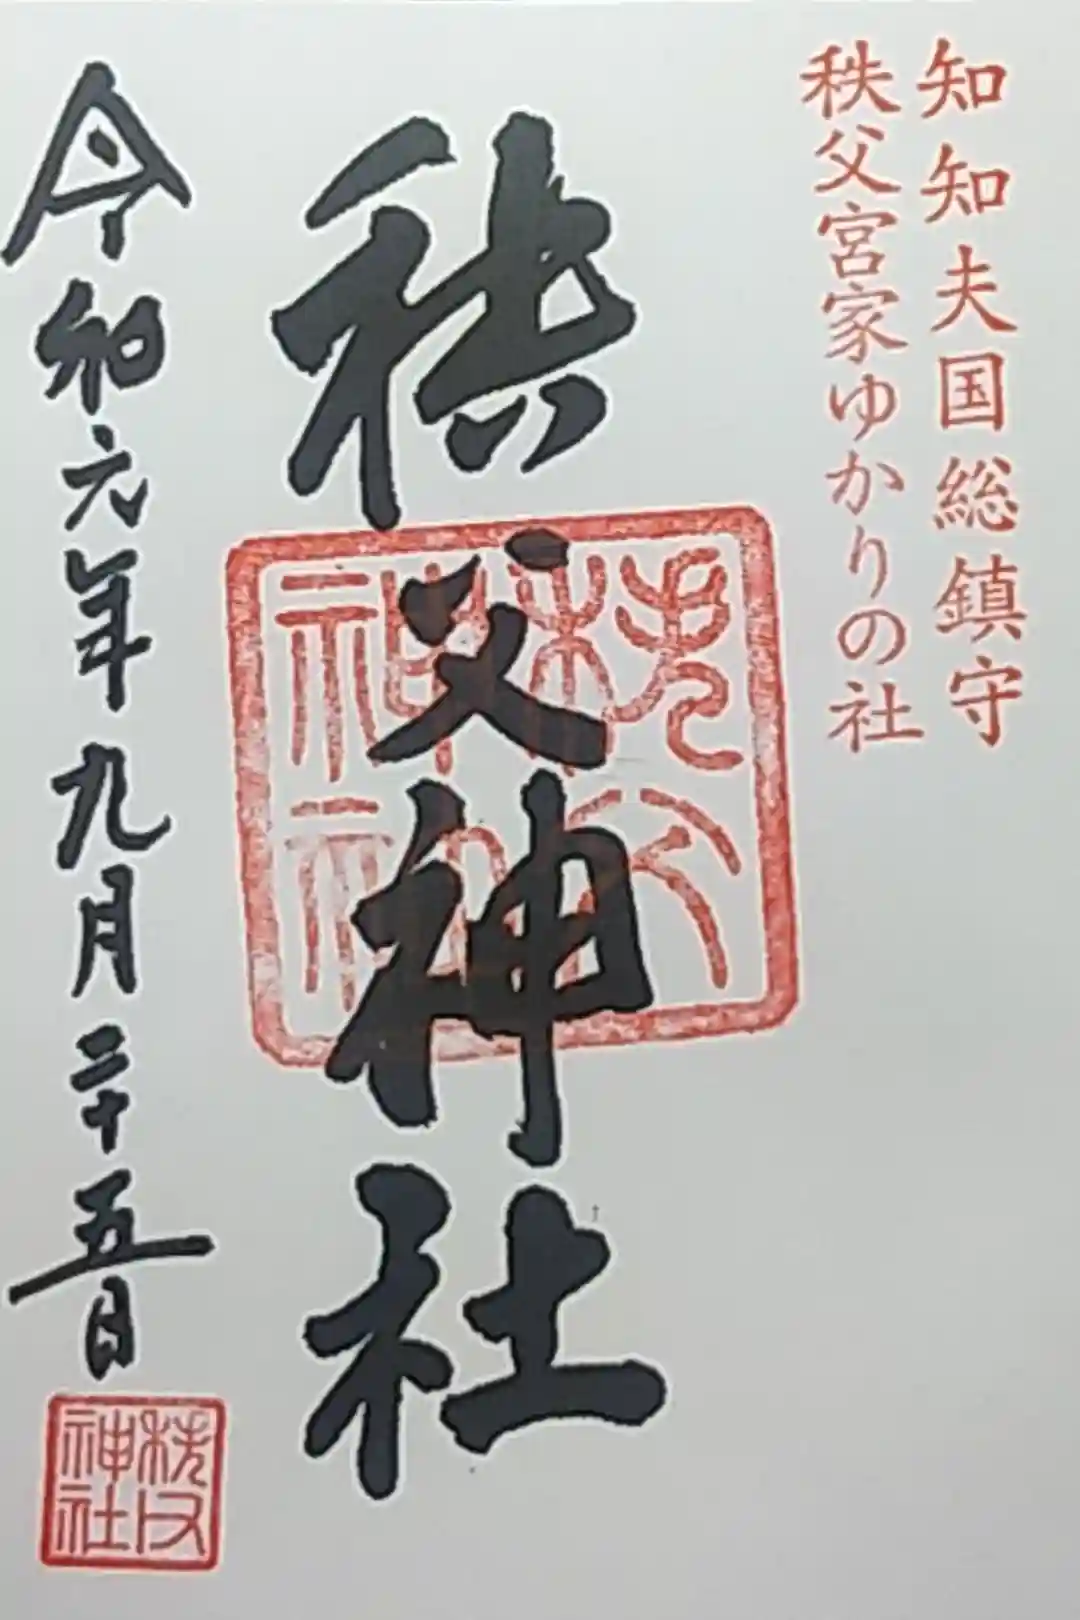 知知夫国総鎮守
秩父宮家ゆかりの社
秩父神社
秩父神社
令和六年九月二十五日
秩父神社